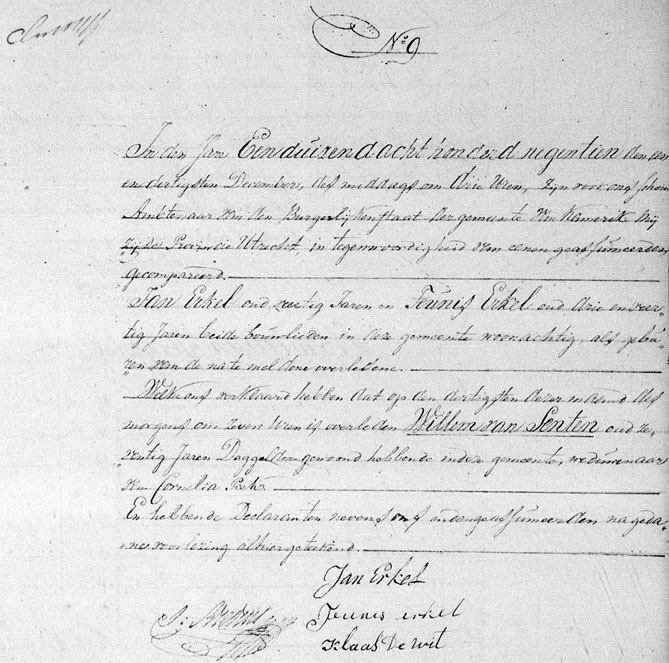 No 9
In den Jare Eenduizendachthonderd negentien den een
en dertigsten December, des middags om drie Uren, zijn voor ons Schout
Ambtenaar van den Burgerlijkenstaat der gemeente van Kamerik Mij
zijde Provincie Utrecht, in tegenwoordigheid van eenen geassumeerden
gecompareerd.
Jan Erkel oud zestig Jaren en Teunis Erkel oud drie en veer
tig Jaren beide bouwlieden in deze gemeente woonachtig, als gebu
ren van de na te meldene overledene.
Welk ons verklaard hebben dat op den dertigsten dezer maand des
morgens om zeven Uren is overleden Willem van Senten oud ze
ventig Jaren Daggelder gewoond hebbende in deze gemeente, weduwenaar
van Cornelia
En hebbende Declaranten nevens ons en den geassumeerden na geda
ne voorlezing alhier geteekend.
Jan Erkel
Teunis erkel
Klaas De wit